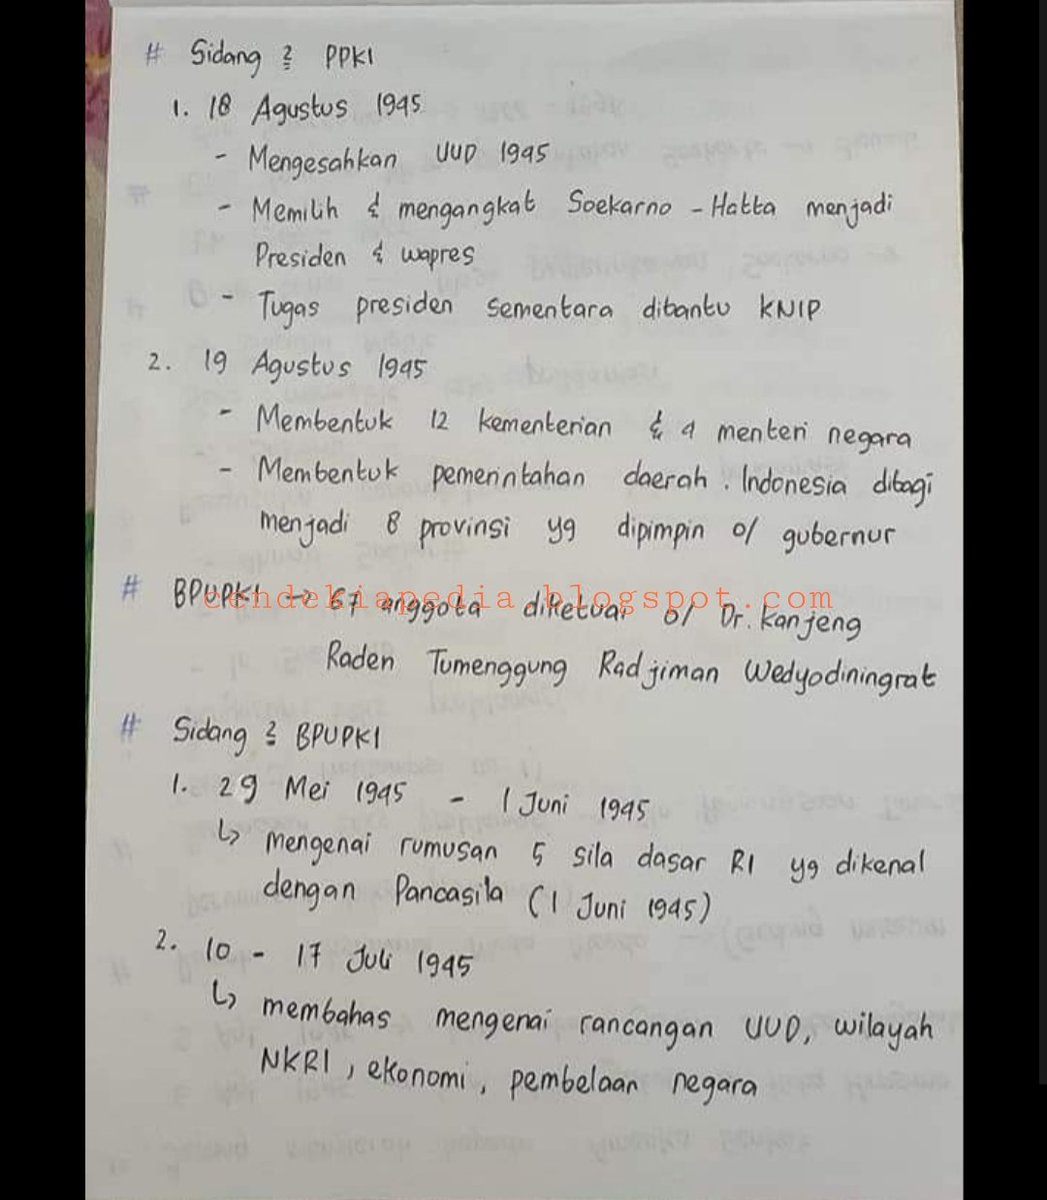 # Sidang ² PPKI
1. 18 Agustus 1945
- Mengesahkan UUD 1945
- Memilih & mengangkat Soekarno - Hatta menjadi
Presiden & wapres
- Tugas presiden sementara dibantu KNIP
2. 19 Agustus 1945
- Membentuk 12 kementerian & 4 menteri negara
- Membentuk pemerintahan daerah. Indonesia dibagi
menjadi 8 provinsi yg dipimpin o/ gubernur
# BPUPKI → 67 anggota diketuai o/ Dr. Kanjeng
cendekiapedia.blogspot.com
Raden Tumenggung Radjiman Wedyodiningrat
# Sidang ² BPUPKI
1. 29 Mei 1945 - 1 Juni 1945
↳ mengenai rumusan 5 sila dasar RI yg dikenal
dengan Pancasila (1 Juni 1945)
2. 10 - 17 Juli 1945
↳ membahas mengenai rancangan UUD, wilayah
NKRI, ekonomi, pembelaan negara